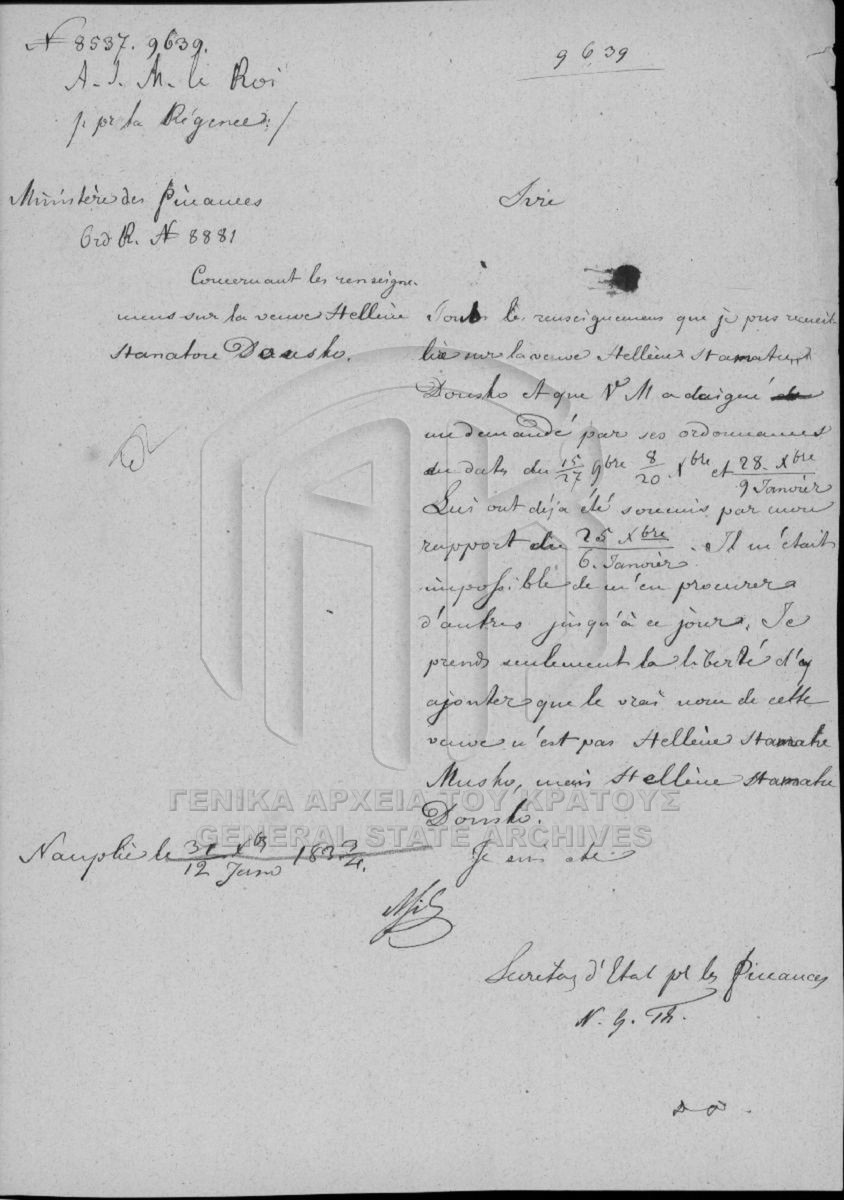 N 8537. 9639.
9639
A. S. M. le Roi
p. pr la Régence
Ministère des Finances
Ord R. N 8881
Concernant les renseigne-
mens sur la veuve Hellène
Stamatore Dousko.
Sire
Tous les renseignemens que je pus recueil-
lir sur la veuve Hellène Stamatre
Dousko et que V M a daigné
me demandé par ses ordonnances
en date du 15/27 9bre 8/20 Xbre et 28 Xbre/9 Janvier
Lui ont déja été soumis par mon
rapport du 25 Xbre/6. Janvier. Il m'était
impossible de m'en procurer
d'autres jusqu'à ce jour. Je
prends seulement la liberté d'y
ajouter que le vrai nom de cette
veuve n'est pas Hellène Stamatre
Musko, mais Hellène Stamatre
Dousko.
Je suis etc
Nauplie le 31 Xbre/12 Janv 1833/4.
Secretaire d'Etat pr les Finances
N. G. Th.
ΓΕΝΙΚΑ ΑΡΧΕΙΑ ΤΟΥ ΚΡΑΤΟΥΣ
GENERAL STATE ARCHIVES